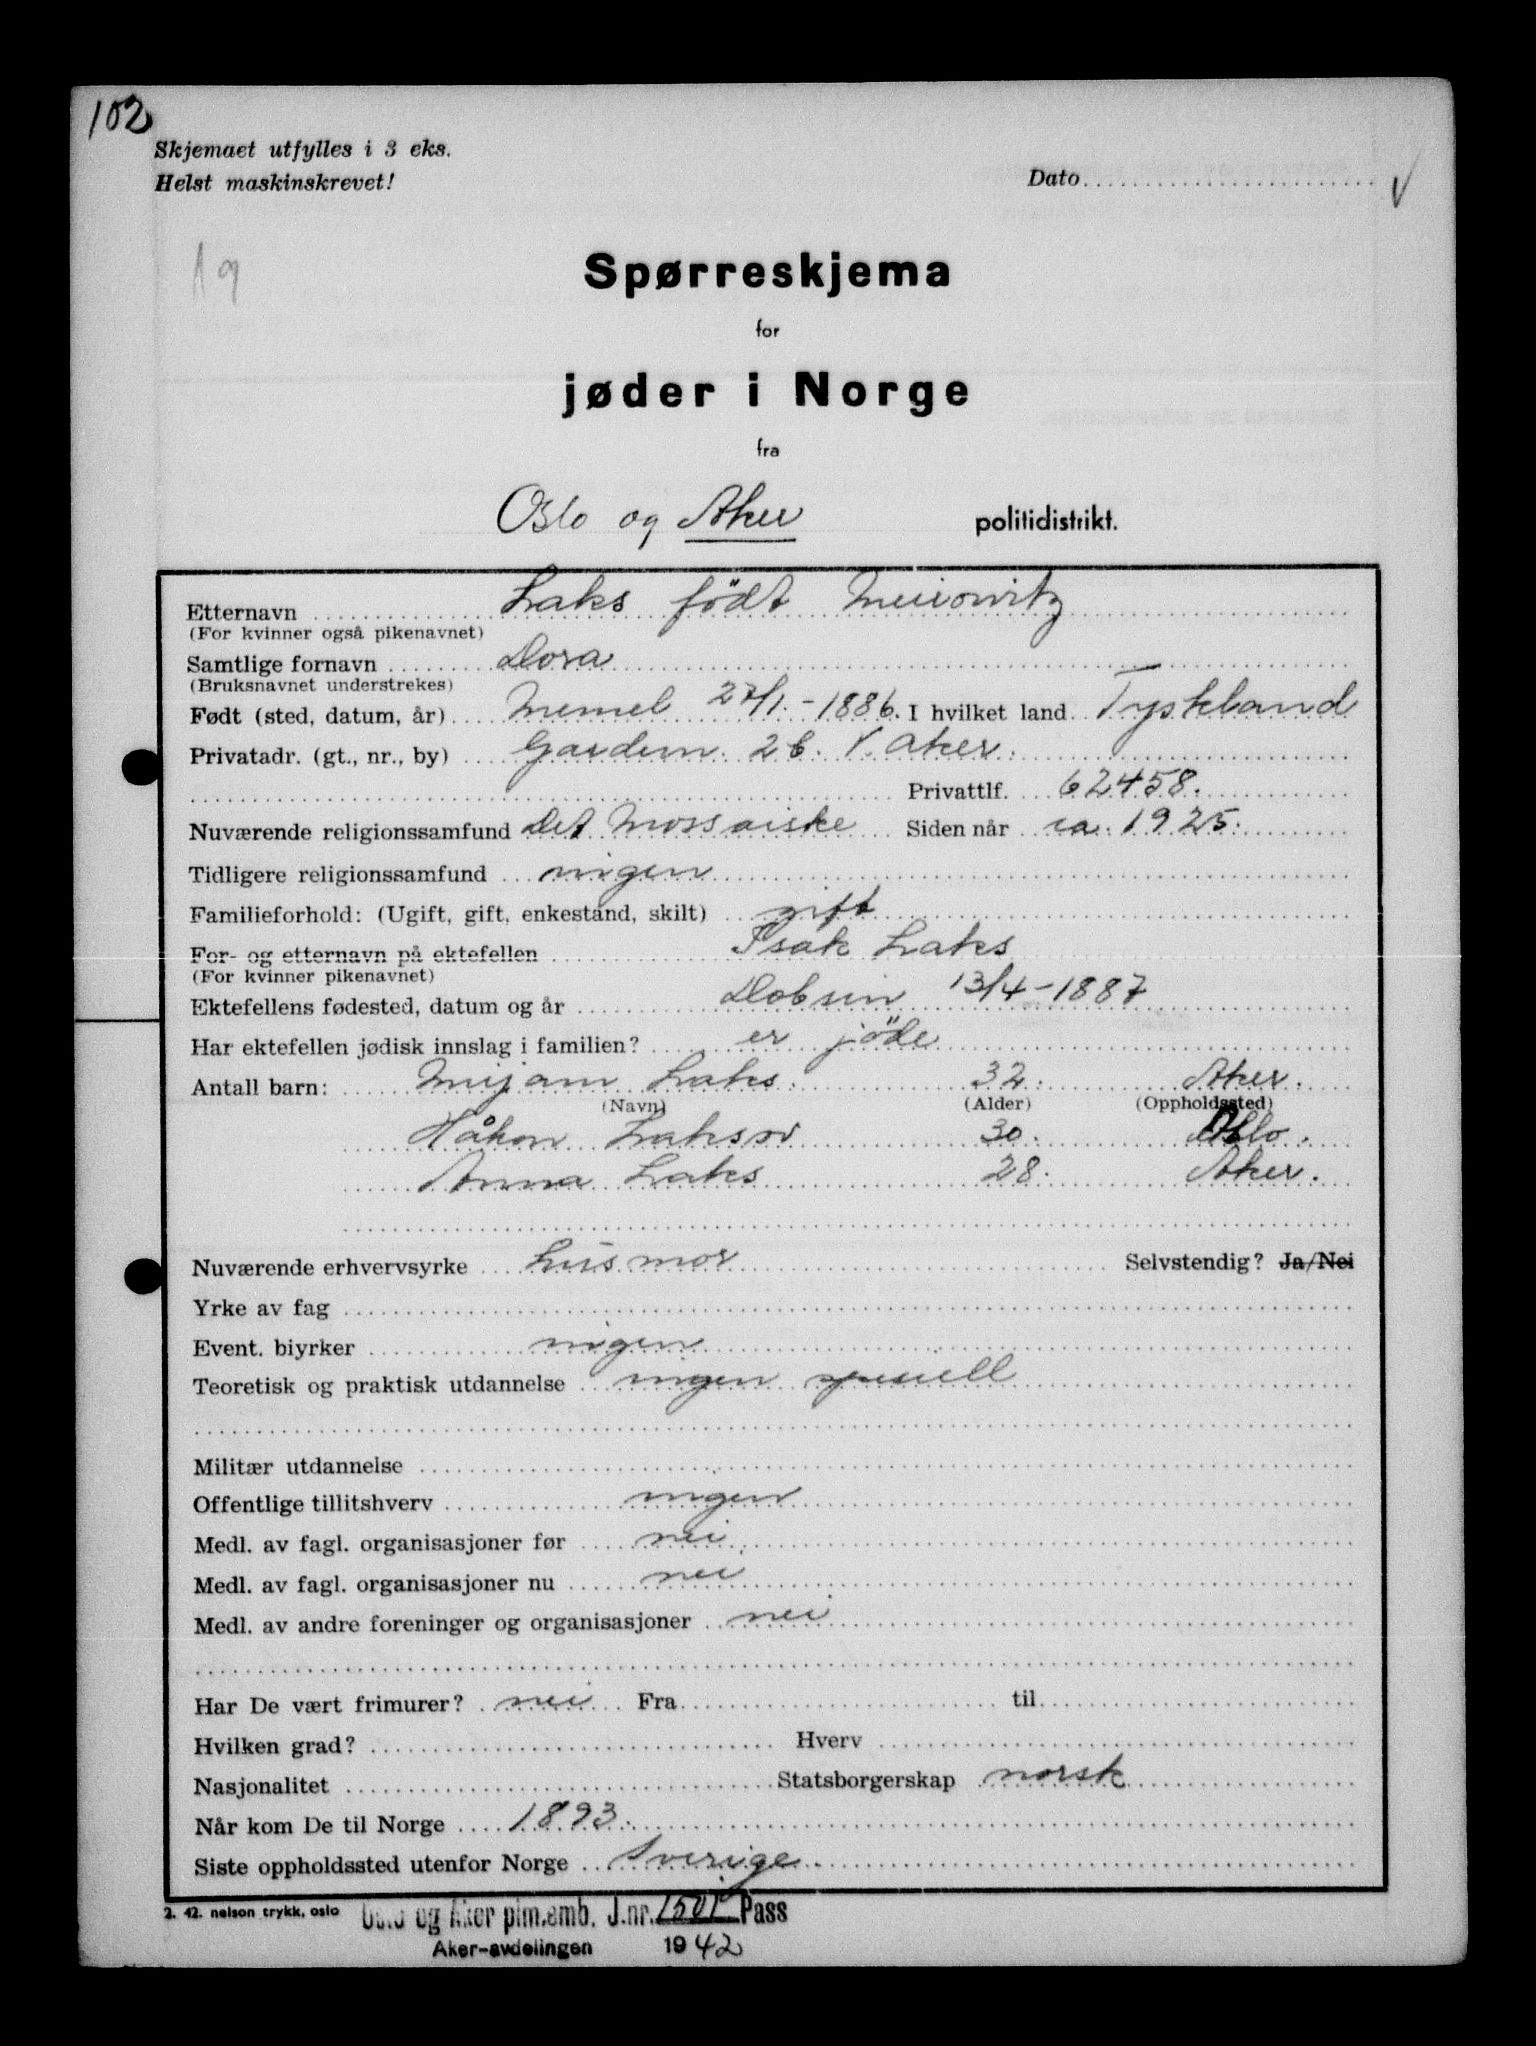 102
Skjemaet utfylles i 3 eks.
Helst maskinskrevet!
Dato
19
Spørreskjema
for
jøder i Norge
fra
Oslo og Aker politidistrikt.
Etternavn Laks född Meirowitz
(For kvinner også pikenavnet)
Samtlige fornavn Dora
(Bruksnavnet understrekes)
Født (sted, datum, år) Memel 27/1.-1886. I hvilket land Tyskland
Privatadr. (gt., nr., by) 2b. V. Aker.
Privattlf. 62458.
Nuværende religionssamfund Det Mossaiske Siden når ca. 1925.
Tidligere religionssamfund ingen
Familieforhold: (Ugift, gift, enkestand, skilt) gift
For- og etternavn på ektefellen Isak Laks
(For kvinner pikenavnet)
Ektefellens fødested, datum og år Dobsin 13/4-1887
Har ektefellen jødisk innslag i familien? er jöde
Antall barn: Mirjam Laks. 32. Aker.
(Navn) (Alder) (Oppholdssted)
Håkon Laksov 30. Oslo.
Anna Laks 28. Aker.
Nuværende erhvervsyrke husmor Selvstendig? Ja/Nei
Yrke av fag
Event. biyrker ingen
Teoretisk og praktisk utdannelse ingen spesiell
Militær utdannelse
Offentlige tillitshverv ingen
Medl. av fagl. organisasjoner før nei
Medl. av fagl. organisasjoner nu nei
Medl. av andre foreninger og organisasjoner nei
Har De vært frimurer? nei Fra til
Hvilken grad? Hverv
Nasjonalitet Statsborgerskap norsk
Når kom De til Norge 1893.
Siste oppholdssted utenfor Norge Sverige.
2. 42. nelson trykk, oslo
Oslo og Aker plm.emb. J.nr. 1501 Pass
Aker-avdelingen 1942